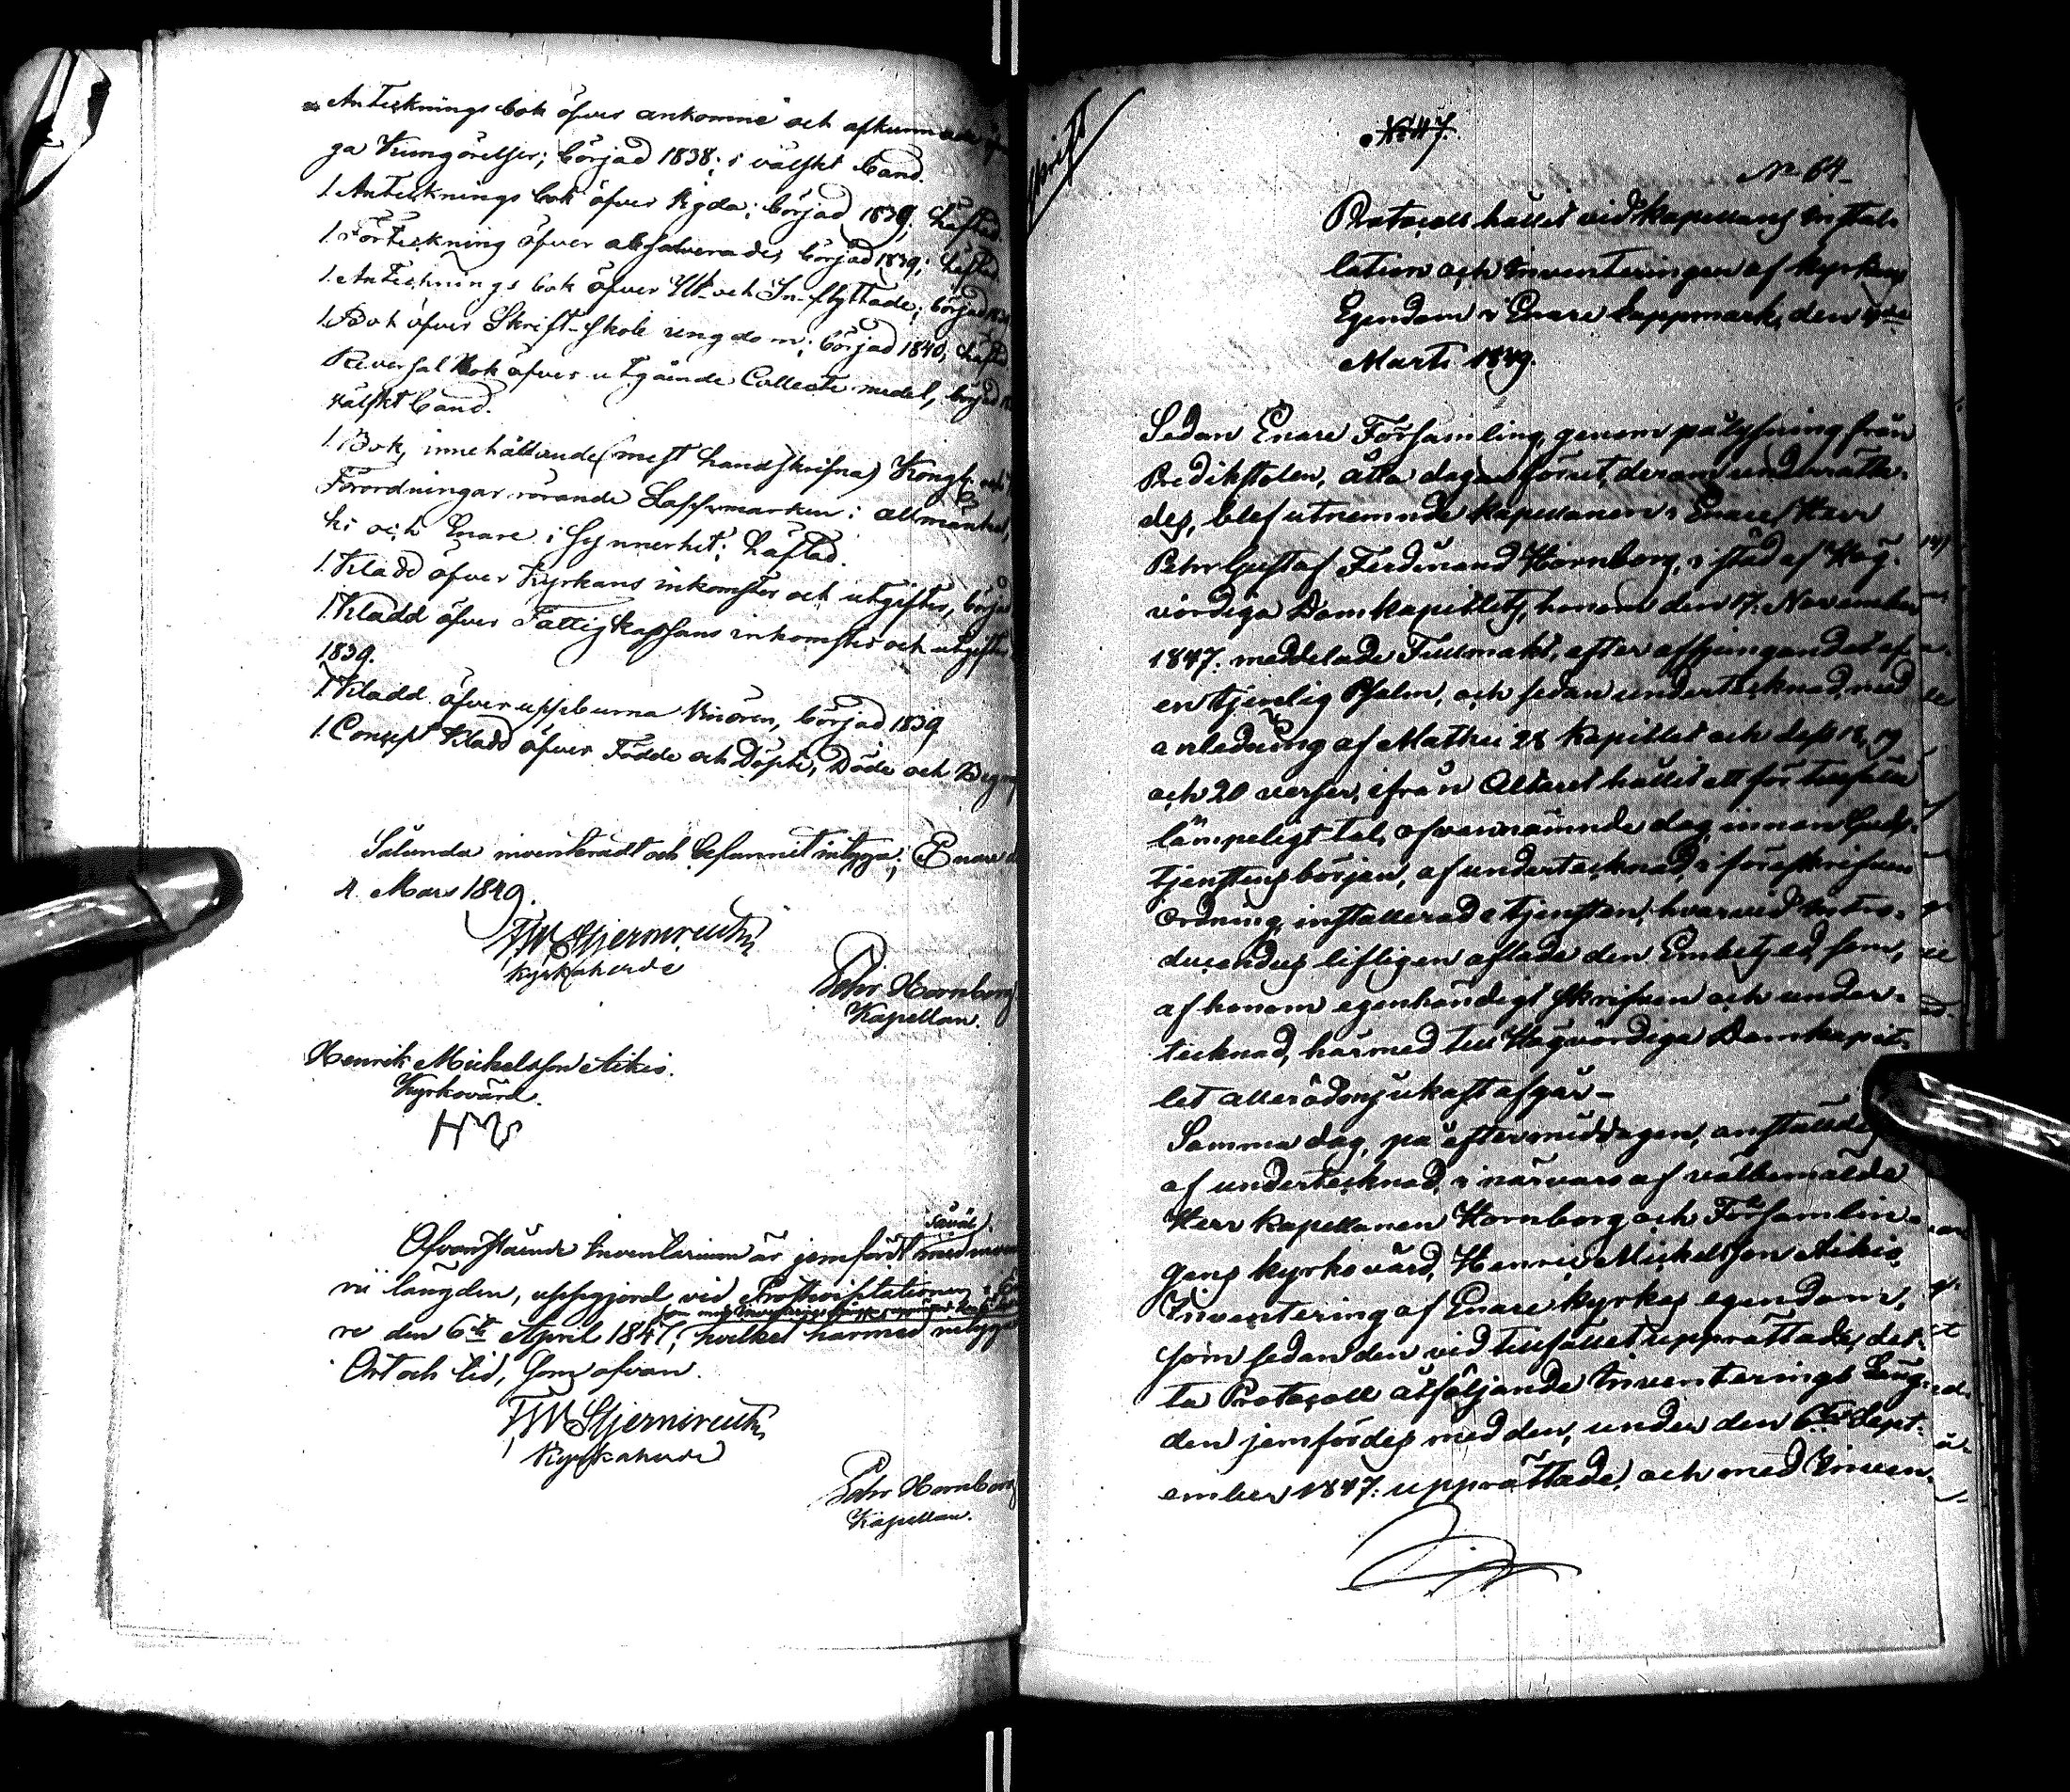 Antecknings bok öfver ankomne och afkunnade
ga Kungörelser; börjad 1838; i välskt band.
1. Antecknings bok öfver Lysda; börjad 1839; häftad.
1. Förteckning öfver absolverade; börjad 1839; häftad.
1. Antecknings bok öfver Ut- och In-flyttade; börjad
1. Bok öfver Skrift-skole ungdom; börjad 1840; häftad.
Reversal Bok öfver utgående Collecte medel, börjad
välskt band.
1. Bok, innehållande (mest handskrifna) Kongl.
Förordningar rörande Lappmarken i allmänhet,
hi och Enare i synnerhet; häftad.
1. Kladd öfver Kyrkans inkomster och utgifter, börjad
1. Kladd öfver Fattigkassans inkomster och utgifter
1839.
1. Kladd öfver uppburna Vivören, börjad 1839
1. Consept Kladd öfver Födde och Döpte, Döde och Begrafne
Sålunda inventeradt och befunnit intyga; Enare d.
4. Mars 1849.
FW Stjernreuth
Kyrkoherde
Pehr Hornborg
Kapellan.
Henrik Michelsson Aikio.
Kyrkovärd.
såväl
Ofvanstående Inventarium är jemfördt med inven
rii längden, uppgjord vid Prostvisitationen i
re den 6te April 1847; hvilket härmed intygas
Ort och tid, som ofvan.
FW Stjernreuth
Kyrkoherde
Pehr Hornborg
Kapellan.
No 47.
No 64
Protocoll hållit vid Kapellans instal-
lation och Inventeringen af kyrkans
Egendom i Enare Lappmark, den 4de
Marti 1849.
Sedan Enare Församling, genom pålysning från
Predikstolen, åtta dagar förut, derom underrätta-
des, blef utnemnde Kapellanen i Enare, Herr
Pehr Gustaf Ferdinand Hornborg, i stöd af Hög-
vördiga Domkapitlets, honom den 17. November
1847. meddelade Fullmakt, efter afsjungandet af
en tjenlig Psalm, och sedan undertecknad, med
anledning af Mathei 28 Kapitlet och dess 18, 19
och 20 verser, ifrån Altaret hållit ett för tillfället
lämpeligt tal, ofvannämnde dag, innan Guds-
tjenstens början, af undertecknad, i föreskrifven
Ordning, installerad i tjensten, hvarvid Intro-
ducendus lifligen aflade den Embetsed, som,
af honom egenhändigt skrifven och under-
tecknad, härmed till Högvördiga Domkapit-
let allerödmjukast afgår –
Samma dag, på eftermiddagen, anställdes
af undertecknad, i närvaro af välbemälde
Herr Kapellanen Hornborg och Församlin-
gens Kyrkovärd, Henric Michelsson Aikio,
Inventering af Enare kyrkas egendom,
som sedan den vid tillfället upprättade, det-
ta Protocoll åtföljande Inventerings Läng-
den jemfördes med den, under den 6te Sept-
ember 1847. upprättade, och med Inven-